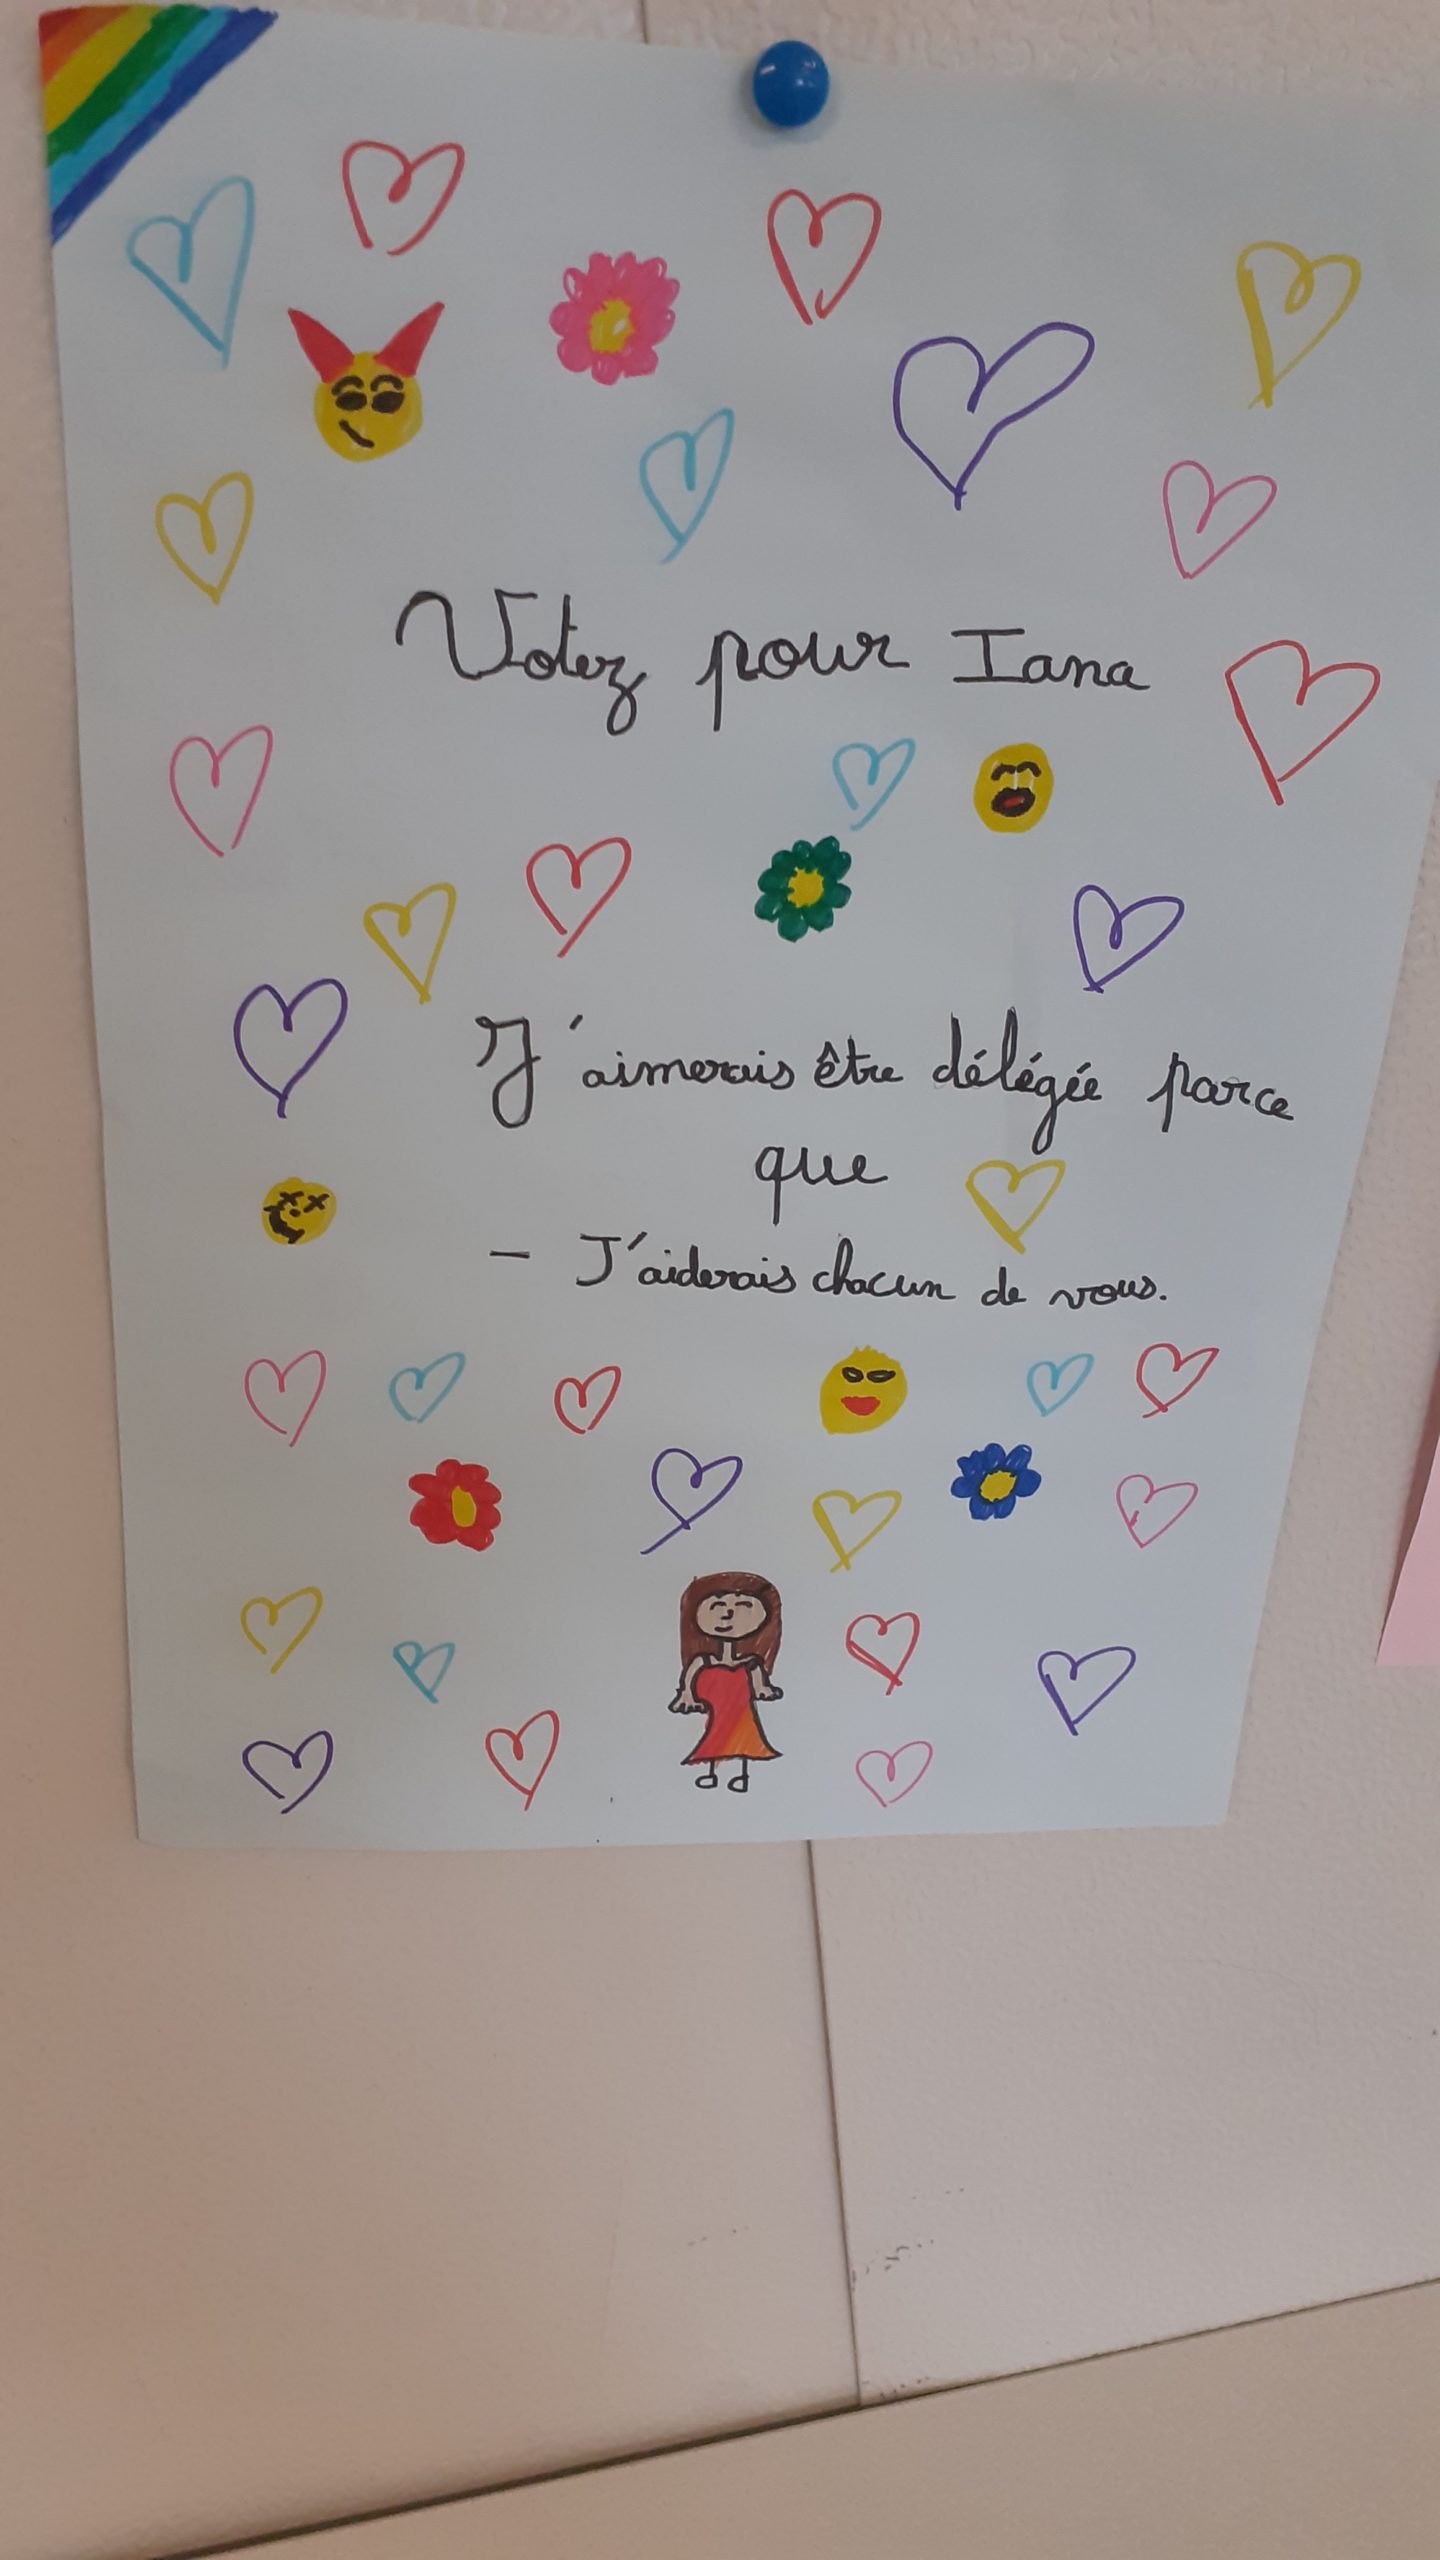 Votez pour Iana
J'aimerais être délégée parce
que
- J'aiderais chacun de vous.